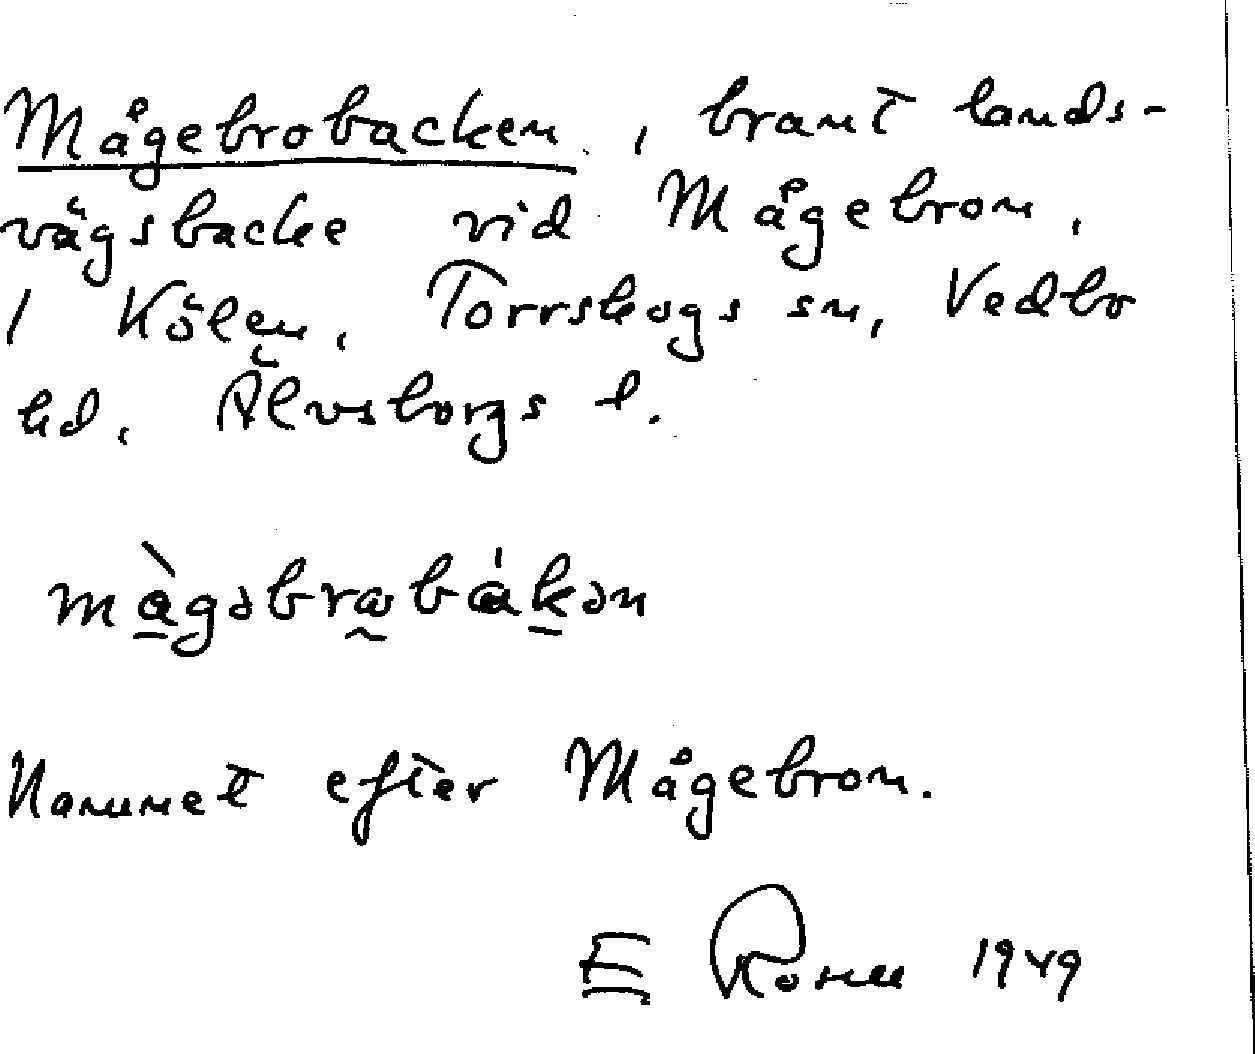 Mågebrobacken, brant lands-
vägsbacke vid Mågebron,
i Kölen, Torrskogs sn, Vedbo
hd, Älvsborgs l.
màgəbrωbákən
Namnet efter Mågebron.
E 1949